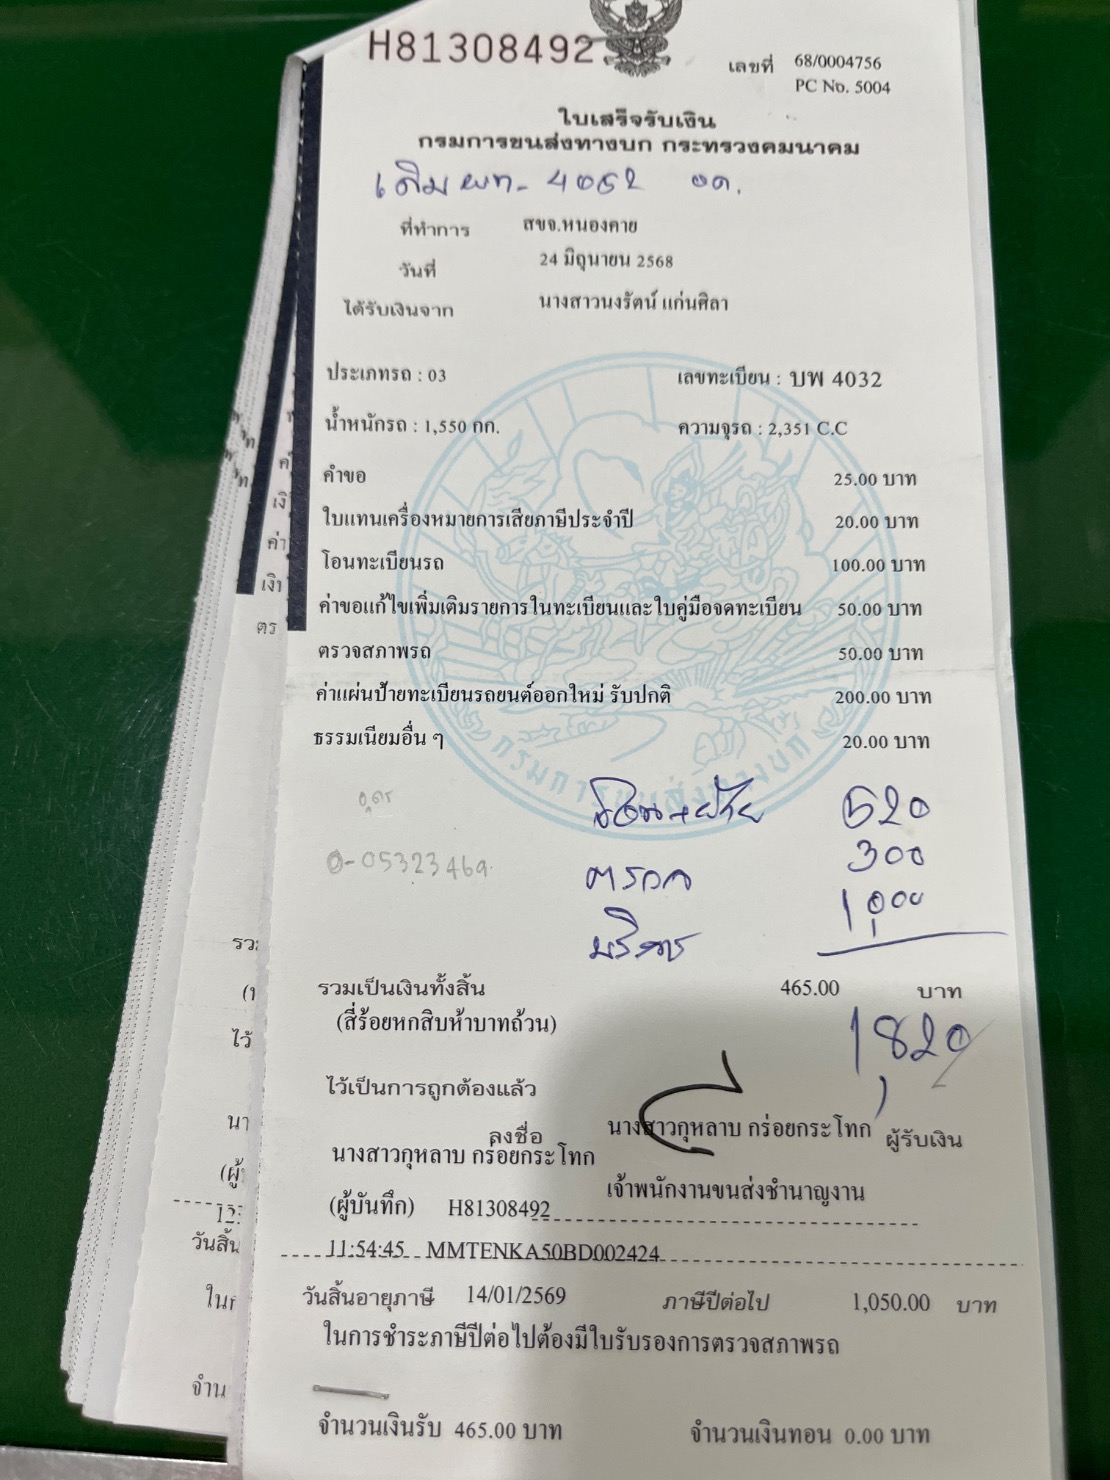 H81308492
เลขที่ 68/0004756
PC No. 5004
ใบเสร็จรับเงิน
กรมการขนส่งทางบก กระทรวงคมนาคม
เดิม ผท-4052 อด.
ที่ทำการ สขจ.หนองคาย
วันที่ 24 มิถุนายน 2568
ได้รับเงินจาก นางสาวนงรัตน์ แก่นศิลา
ประเภทรถ : 03 เลขทะเบียน : บพ 4032
น้ำหนักรถ : 1,550 กก. ความจุรถ : 2,351 C.C
คำขอ 25.00 บาท
ใบแทนเครื่องหมายการเสียภาษีประจำปี 20.00 บาท
โอนทะเบียนรถ 100.00 บาท
ค่าขอแก้ไขเพิ่มเติมรายการในทะเบียนและใบคู่มือจดทะเบียน 50.00 บาท
ตรวจสภาพรถ 50.00 บาท
ค่าแผ่นป้ายทะเบียนรถยนต์ออกใหม่ รับปกติ 200.00 บาท
ธรรมเนียมอื่น ๆ 20.00 บาท
กรมการขนส่งทางบก
อุดร
โอน+ย้าย 520
0-05323469
ตรวจ 300
บริการ 1,000
รวมเป็นเงินทั้งสิ้น 465.00 บาท
(สี่ร้อยหกสิบห้าบาทถ้วน)
1,820
ไว้เป็นการถูกต้องแล้ว
ลงชื่อ นางสาวกุหลาบ กร่อยกระโทก ผู้รับเงิน
นางสาวกุหลาบ กร่อยกระโทก
เจ้าพนักงานขนส่งชำนาญงาน
(ผู้บันทึก) H81308492
11:54:45 MMTENKA50BD002424
วันสิ้นอายุภาษี 14/01/2569 ภาษีปีต่อไป 1,050.00 บาท
ในการชำระภาษีปีต่อไปต้องมีใบรับรองการตรวจสภาพรถ
จำนวนเงินรับ 465.00 บาท จำนวนเงินทอน 0.00 บาท